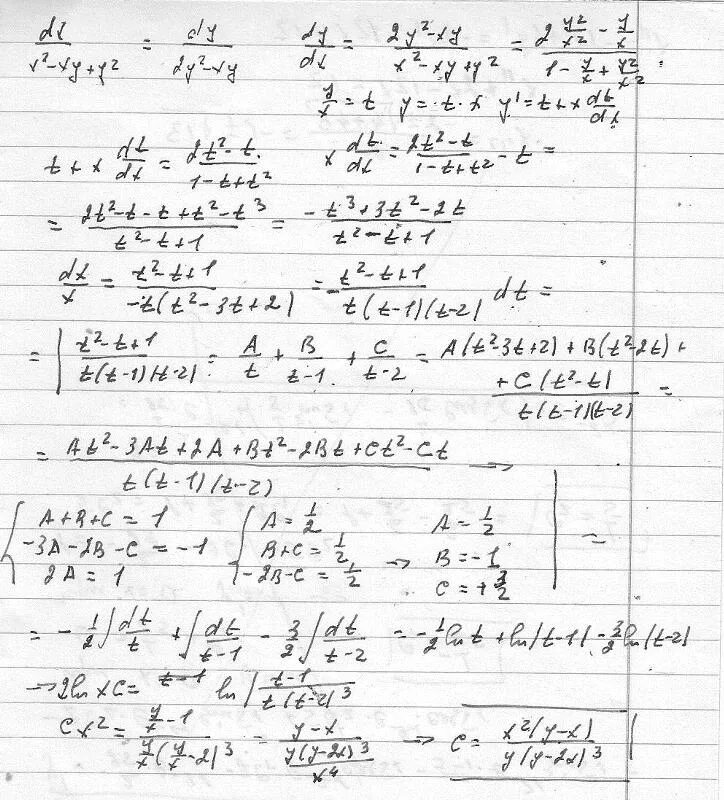 dx/(x²-xy+y²) = dy/(2y²-xy)   dy/dx = (2y²-xy)/(x²-xy+y²) = (2 y²/x² - y/x)/(1 - y/x + y²/x²) .
y/x = t   y = t · x   y' = t + x dt/dx
t + x dt/dx = (2t²-t)/(1-t+t²)   x dt/dx = (2t²-t)/(1-t+t²) - t =
= (2t²-t-t+t²-t³)/(t²-t+1) = (-t³+3t²-2t)/(t²-t+1)
dx/x = (t²-t+1)/(-t(t²-3t+2)) = -(t²-t+1)/(t(t-1)(t-2)) dt =
= | (t²-t+1)/(t(t-1)(t-2)) = A/t + B/(t-1) + C/(t-2) = (A(t²-3t+2) + B(t²-2t) +
+ C(t²-t))/(t(t-1)(t-2)) =
= (At²-3At+2A+Bt²-2Bt+Ct²-Ct)/(t(t-1)(t-2)) →
{ A+B+C = 1   { A = 1/2   A = 1/2
-3A-2B-C = -1   B+C = 1/2 → B = -1 | =
2A = 1   -2B-C = 1/2   C = +3/2
= -1/2 ∫ dt/t + ∫ dt/(t-1) - 3/2 ∫ dt/(t-2) = -1/2 ln t + ln|t-1| - 3/2 ln|t-2|
→ 2ln xC = t-1 ln | (t-1)/(t(t-2)³
Cx² = (y/x - 1)/(y/x (y/x - 2)³) = (y-x)/(y(y-2x)³/x⁴) → C = x²(y-x)/(y(y-2x)³) |